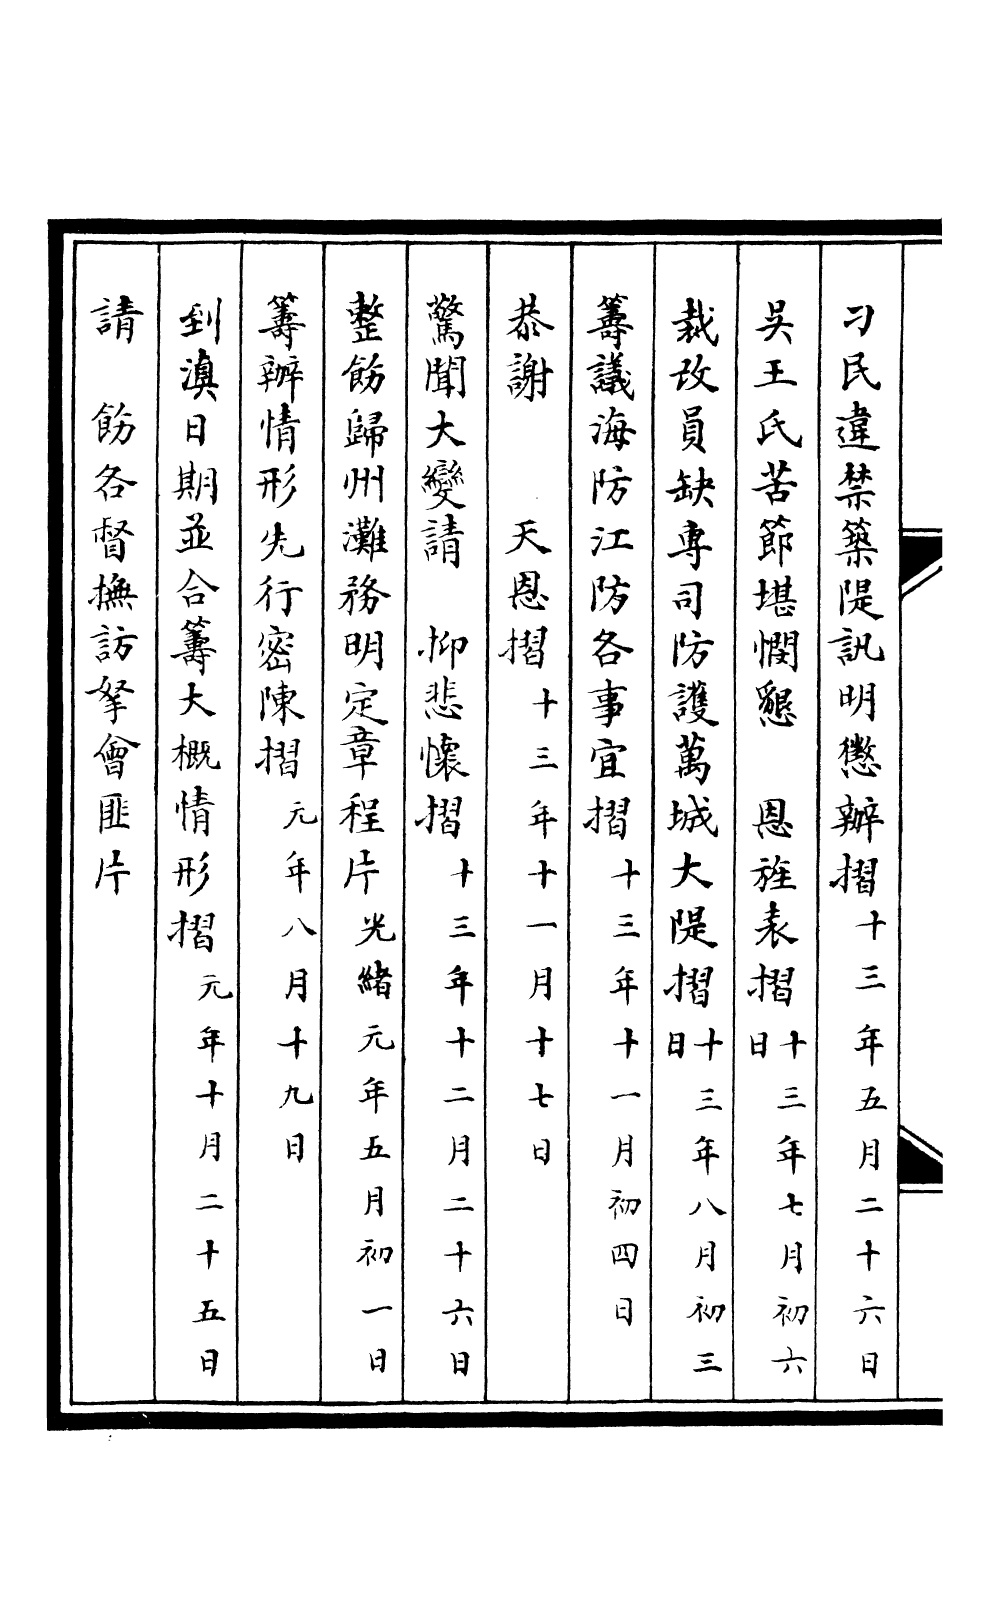 刁民違禁築隄訊明懲辦摺十三年五月二十六日
吳王氏苦節堪憫懇　恩旌表摺十三年七月初六日
裁改員缺専司防護萬城大隄摺十三年八月初三日
籌議海防江防各事宜摺十三年十一月初四日
恭謝　天恩摺十三年十一月十七日
驚聞大變請　抑悲懷摺十三年十二月二十六日
整飭歸州灘務明定章程片光緒元年五月初一日
籌辦情形先行密陳摺元年八月十九日
到滇日期並合籌大概情形摺元年十月二十五日
請　飭各督撫訪拏會匪片